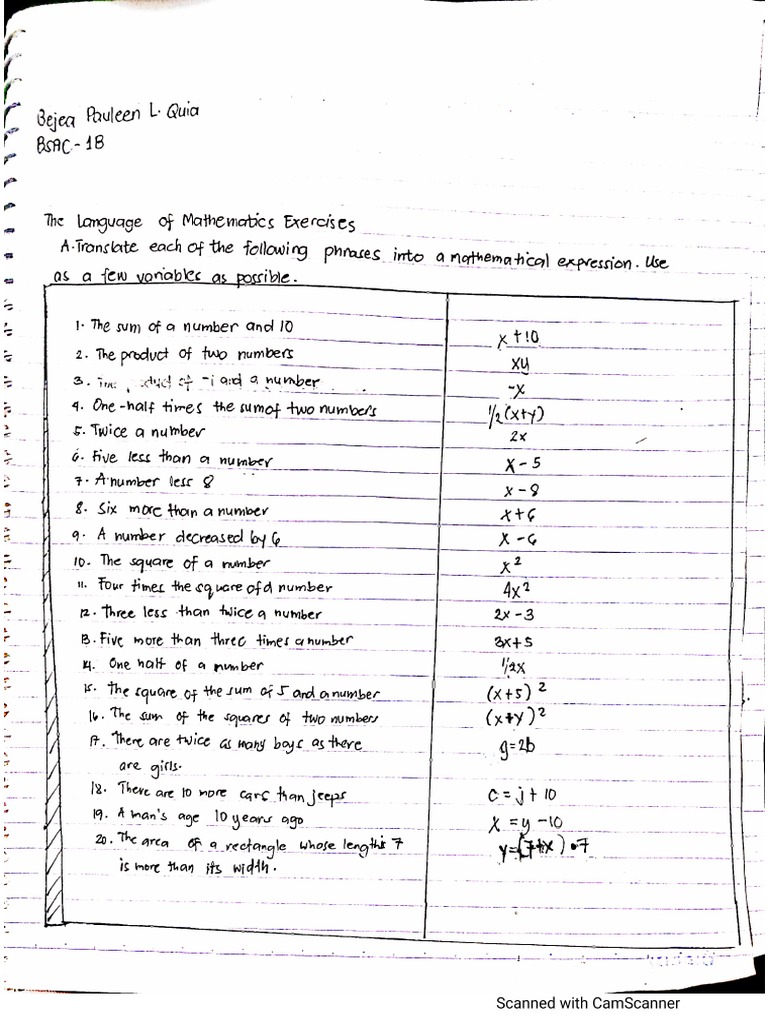 Bejea Pauleen L. Quia
BSAC-1B
The Language of Mathematics Exercises
A. Translate each of the following phrases into a mathematical expression. Use
as a few variables as possible.
1. The sum of a number and 10 x+10
2. The product of two numbers xy
3. of -1 and a number -x
4. One-half times the sum of two numbers 1/2(x+y)
5. Twice a number 2x
6. Five less than a number x-5
7. A number less 8 x-8
8. Six more than a number x+6
9. A number decreased by 6 x-6
10. The square of a number x²
11. Four times the square of a number 4x²
12. Three less than twice a number 2x-3
13. Five more than three times a number 3x+5
14. One half of a number 1/2x
15. The square of the sum of 5 and a number (x+5)²
16. The sum of the squares of two numbers (x+y)²
17. There are twice as many boys as there g=2b
are girls.
18. There are 10 more cars than jeeps c=j+10
19. A man's age 10 years ago x=y-10
20. The area of a rectangle whose length is 7 y=(7+x)•7
is more than its width.
Scanned with CamScanner